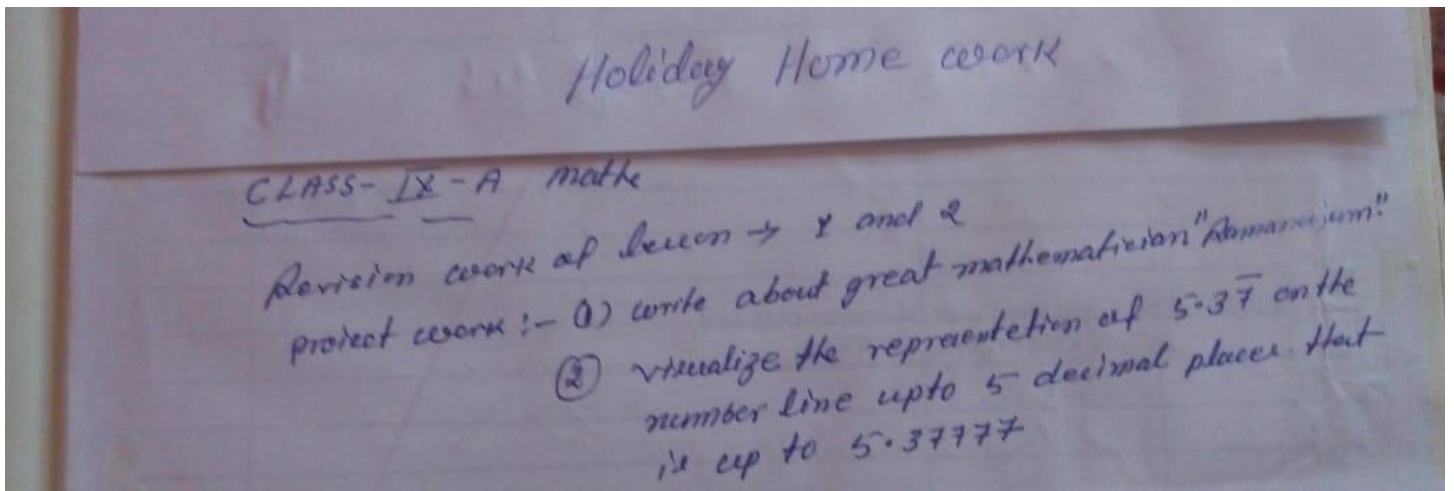 Holiday Home work
CLASS-IX-A maths
Revision work of lesson → 1 and 2
project work :- (1) write about great mathematician "Ramanujum"
(2) visualize the representation of 5.37̅ on the
number line upto 5 decimal places that
is up to 5.37777